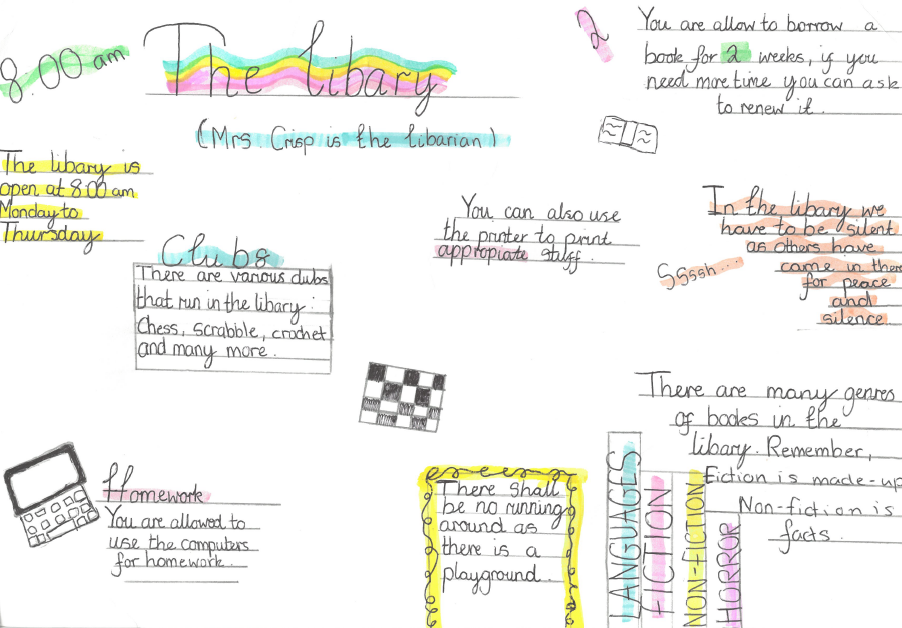 8:00 am
The libary
(Mrs. Crisp is the libarian)
2
You are allow to borrow a
book for 2 weeks, if you
need more time you can ask
to renew it.
The libary is
open at 8:00 am
Monday to
Thursday
You can also use
the printer to print
appropiate stuff.
In the libary we
have to be silent
as others have
came in there
for peace
and
silence
Ssssh...
Clubs
There are various clubs
that run in the libary:
Chess, scrabble, crochet
and many more.
There are many genres
of books in the
libary. Remember,
Fiction is made-up
Non-fiction is
facts.
Homework
You are allowed to
use the computers
for homework.
There shall
be no running
around as
there is a
playground.
LANGUAGES
FICTION
NON-FICTION
HORROR